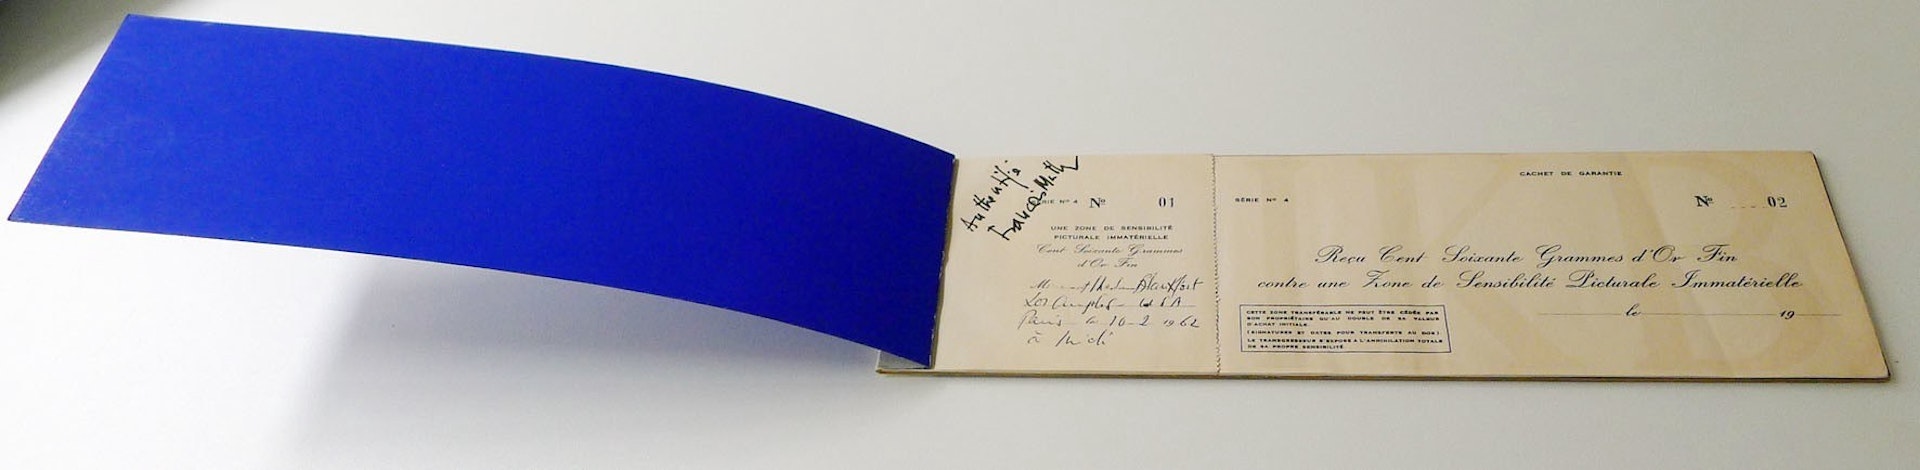 Authentifié
François Mathey
SÉRIE Nº 4 Nº 01
UNE ZONE DE SENSIBILITÉ
PICTURALE IMMATÉRIELLE
Cent Soixante Grammes
d'Or Fin
Blankfort
Los Angeles - USA
Paris le 10-2 1962
à Midi
CACHET DE GARANTIE
SÉRIE Nº 4 Nº 02
Reçu Cent Soixante Grammes d'Or Fin
contre une Zone de Sensibilité Picturale Immatérielle
le 19
CETTE ZONE TRANSFÉRABLE NE PEUT ÊTRE CÉDÉE PAR
SON PROPRIÉTAIRE QU'AU DOUBLE DE SA VALEUR
D'ACHAT INITIALE.
(SIGNATURES ET DATES POUR TRANSFERTS AU DOS)
LE TRANSGRESSEUR S'EXPOSE A L'ANNIHILATION TOTALE
DE SA PROPRE SENSIBILITÉ